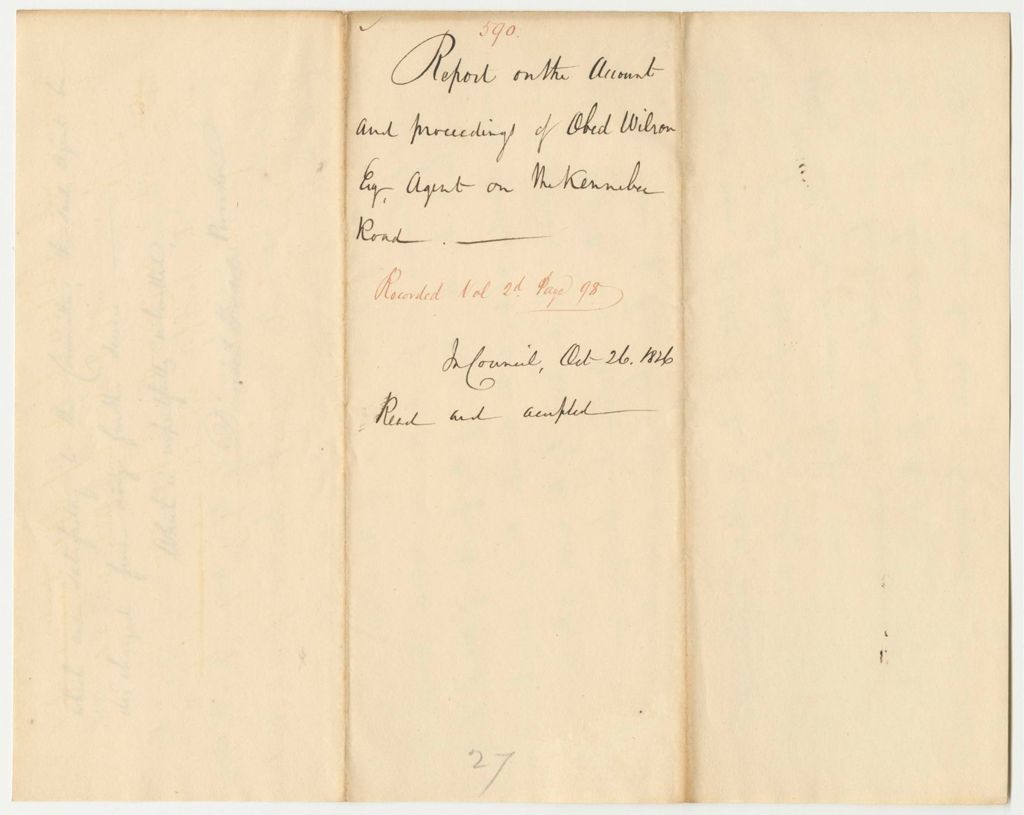 590.
Report on the Account
and proceedings of Obed Wilson
Esq, Agent on the Kennebec
Road. —
Recorded Vol 2d. Page 98
In Council, Oct 26. 1826
Read and accepted
27